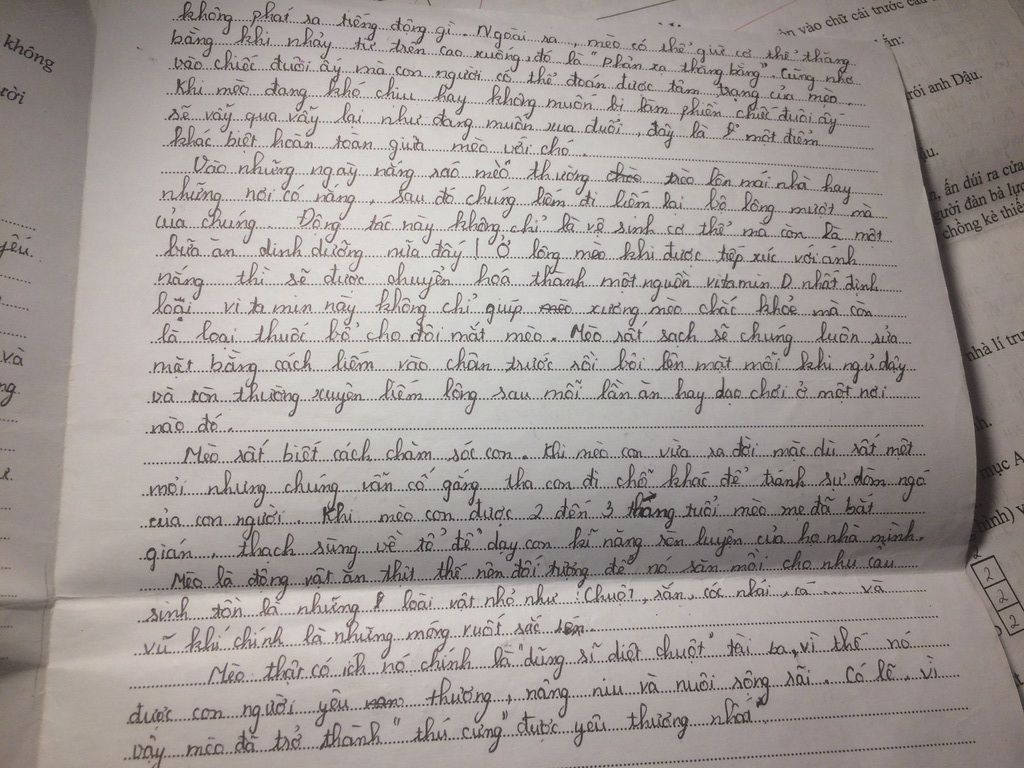 không phát ra tiếng động gì. Ngoài ra, mèo có thể giữ cơ thể thăng
bằng khi nhảy từ trên cao xuống, đó là "phản xạ thăng bằng" cũng nhờ
vào chiếc đuôi ấy mà con người có thể đoán được tâm trạng của mèo.
Khi mèo đang khó chịu hay không muốn bị làm phiền chiếc đuôi ấy
sẽ vẫy qua vẫy lại như đang muốn xua đuổi, đây là một điểm
khác biệt hoàn toàn giữa mèo với chó.
Vào những ngày nắng ráo mèo thường trèo lên mái nhà hay
những nơi có nắng, sau đó chúng liếm đi liếm lại bộ lông mượt mà
của chúng. Động tác này không chỉ là vệ sinh cơ thể mà còn là một
bữa ăn dinh dưỡng nữa đấy! Ở lông mèo khi được tiếp xúc với anh
nắng thì sẽ được chuyển hoá thành một nguồn vitamin D nhất định
loại vitamin này không chỉ giúp xương mèo chắc khỏe mà còn
là loại thuốc bổ cho đôi mắt mèo. Mèo rất sạch sẽ chúng luôn rửa
mặt bằng cách liếm vào chân trước rồi bôi lên mặt mỗi khi ngủ dậy
và còn thường xuyên liếm lông sau mỗi lần ăn hay dạo chơi ở một nơi
nào đó.
Mèo rất biết cách chăm sóc con. Khi mèo con vừa ra đời mặc dù rất mệt
mỏi nhưng chúng vẫn cố gắng tha con đi chỗ khác để tránh sự dòm ngó
của con người. Khi mèo con được 2 đến 3 tháng tuổi mèo mẹ đã bắt
gián, thạch sùng về tổ để dạy con kĩ năng rèn luyện của họ nhà mình.
Mèo là động vật ăn thịt thế nên đối tượng để nó săn mồi cho nhu cầu
sinh tồn là những loài vật nhỏ như: Chuột, rắn, cóc nhái, cá ... và
vũ khí chính là những móng vuốt sắc
Mèo thật có ích nó chính là "dũng sĩ diệt chuột" tài ba, vì thế nó
được con người yêu thương, nâng niu và nuôi sống rãi. Có lẽ vì
vậy mèo đã trở thành "thú cưng" được yêu thương nhất
không
rời
yếu.
và
ng
vào chữ cái trước câu
rời anh Dậu.
ấn dúi ra cửa
người đàn bà lực
chồng kẻ thiế
nhà lí trư
mục A
2
2
2